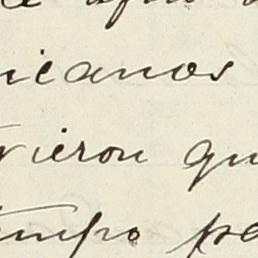 icanos
vieron qu
tiempo pe